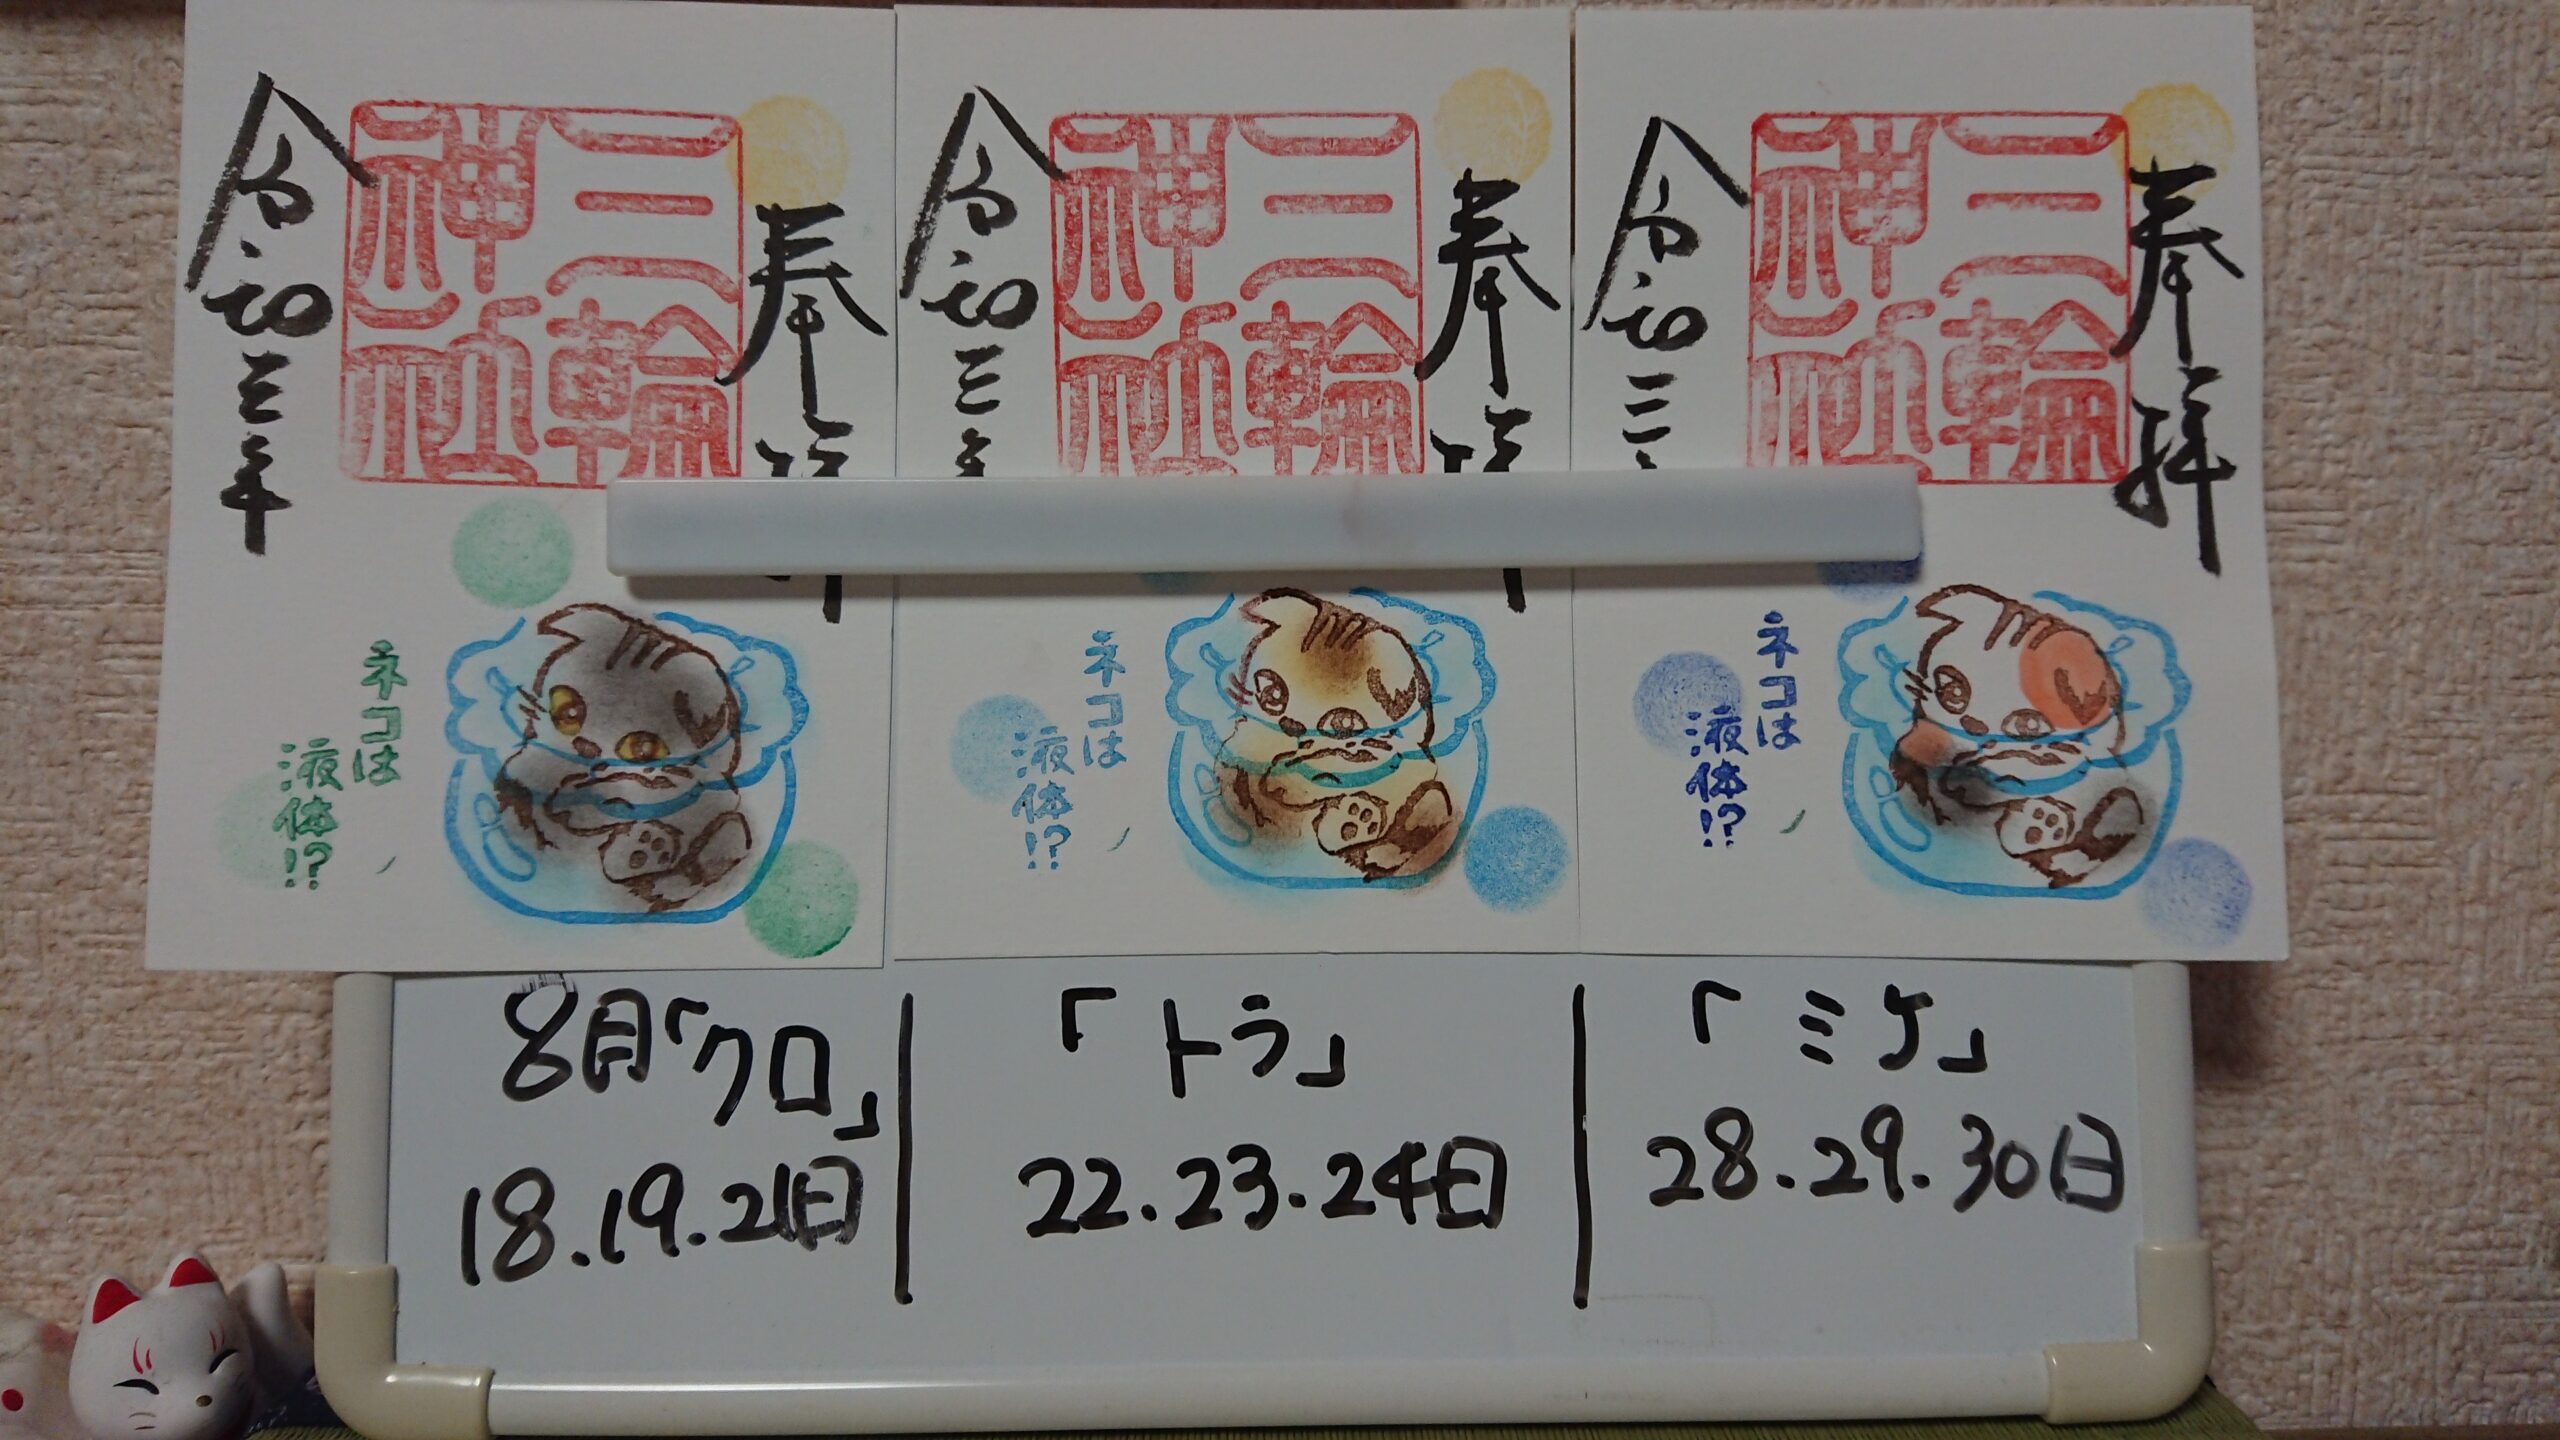 奉拝
三輪神社
令和三年
ネコは
液体!?
奉拝
三輪神社
令和三年
ネコは
液体!?
奉拝
三輪神社
令和三
ネコは
液体!?
8月「クロ」
18.19.21日
「トラ」
22.23.24日
「ミケ」
28.29.30日